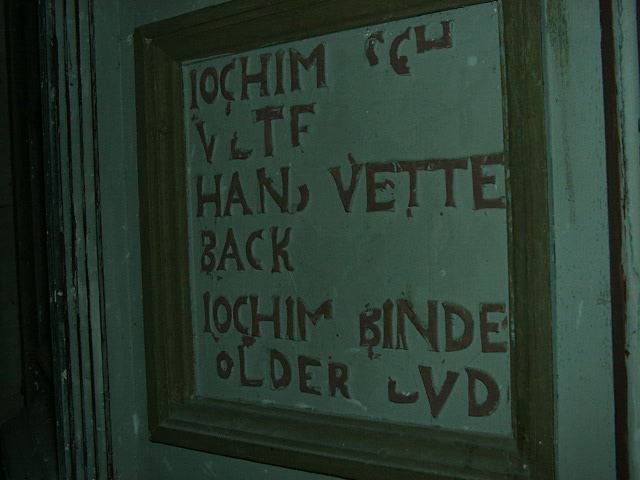 IOCHIM
HANS VETTE
BACK
IOCHIM BINDE
OLDER LVD